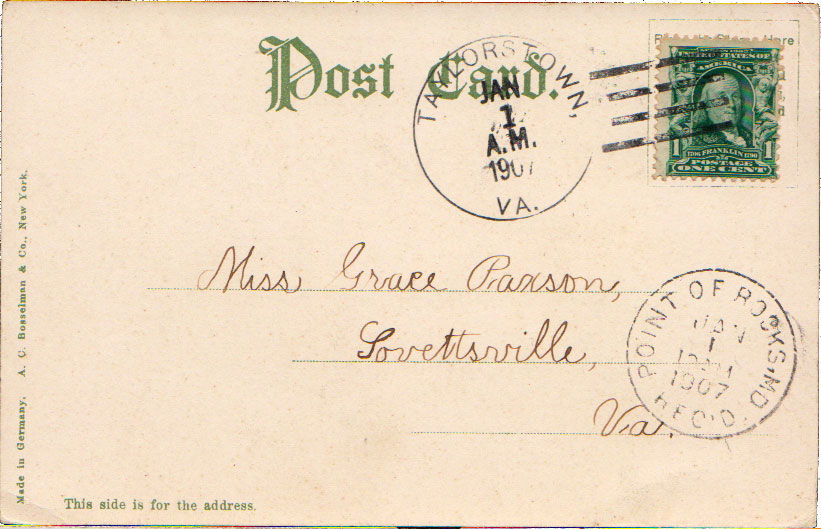 Post Card.
TAYLORSTOWN, VA.
JAN
1
A.M.
1907
UNITED STATES OF
AMERICA
1706 FRANKLIN 1790
POSTAGE
1 ONE CENT 1
Here
Miss Grace Paxson,
Lovettsville,
Va.
POINT OF ROCKS, MD.
JAN
1
1907
REC'D.
Made in Germany. A. C. Bosselman & Co., New York.
This side is for the address.